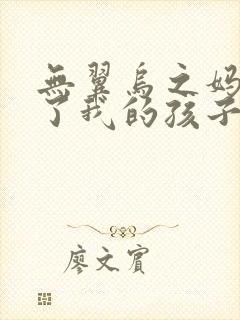 無翼烏之妈
了我的孩子
廖文賓